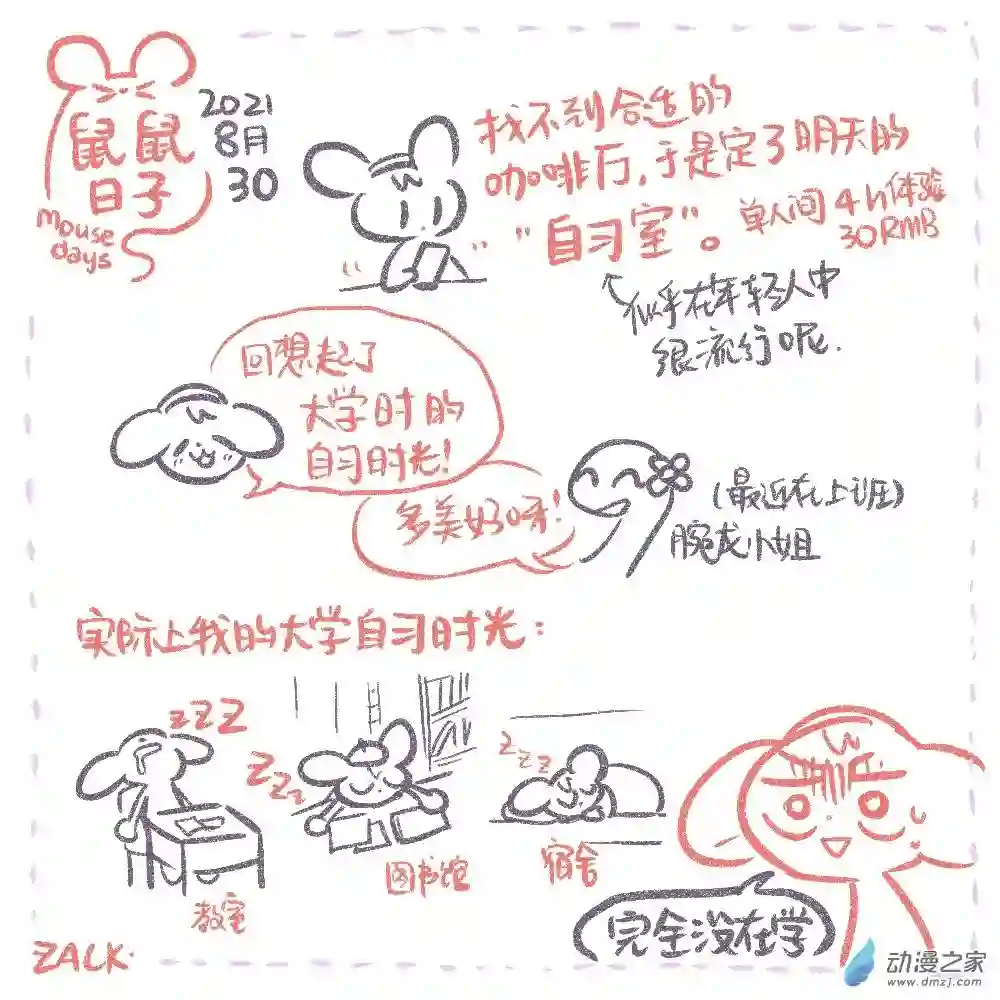 鼠鼠
日子
mouse
days
2021
8月
30
找不到合适的
咖啡厅,于是定了明天的
“自习室”。
单人间4h体验
30RMB
似乎在年轻人中
很流行呢.
回想起了
大学时的
自习时光!
多美好呀!
(最近在上班)
腕龙小姐
实际上我的大学自习时光:
zZZ
ZZZ
ZZZZ
教室
图书馆
宿舍
完全没在学
ZALK.
动漫之家
www.dmzj.com